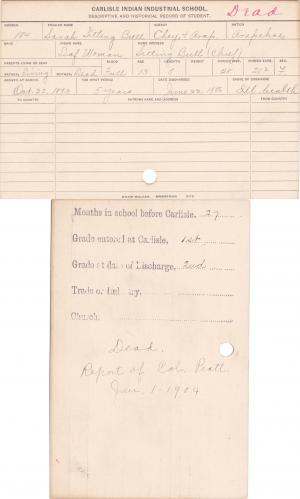 CARLISLE INDIAN INDUSTRIAL SCHOOL.
DESCRIPTIVE AND HISTORICAL RECORD OF STUDENT.
Dead
NUMBER ENGLISH NAME AGENCY NATION
184 Sarah Sitting Bull Chey & Arap. Arapahoe
BAND INDIAN NAME HOME ADDRESS
Deaf Woman Sitting Bull (Chief)
PARENTS LIVING OR DEAD BLOOD AGE HEIGHT WEIGHT FORCED INSP. FORCED EXPR. SEX
FATHER, Living MOTHER, Dead Full 13 F.
ARRIVED AT SCHOOL FOR WHAT PERIOD DATE DISCHARGED CAUSE OF DISCHARGE
Oct. 22, 1895 5 years June 22, 1896 Ill health
TO COUNTRY PATRONS NAME AND ADDRESS FROM COUNTRY
Months in school before Carlisle, 27
Grade entered at Carlisle, 1st
Grade at date of Discharge, 2nd
Trade or Industry,
Church,
Dead.
Report of Col. Pratt
1-1904